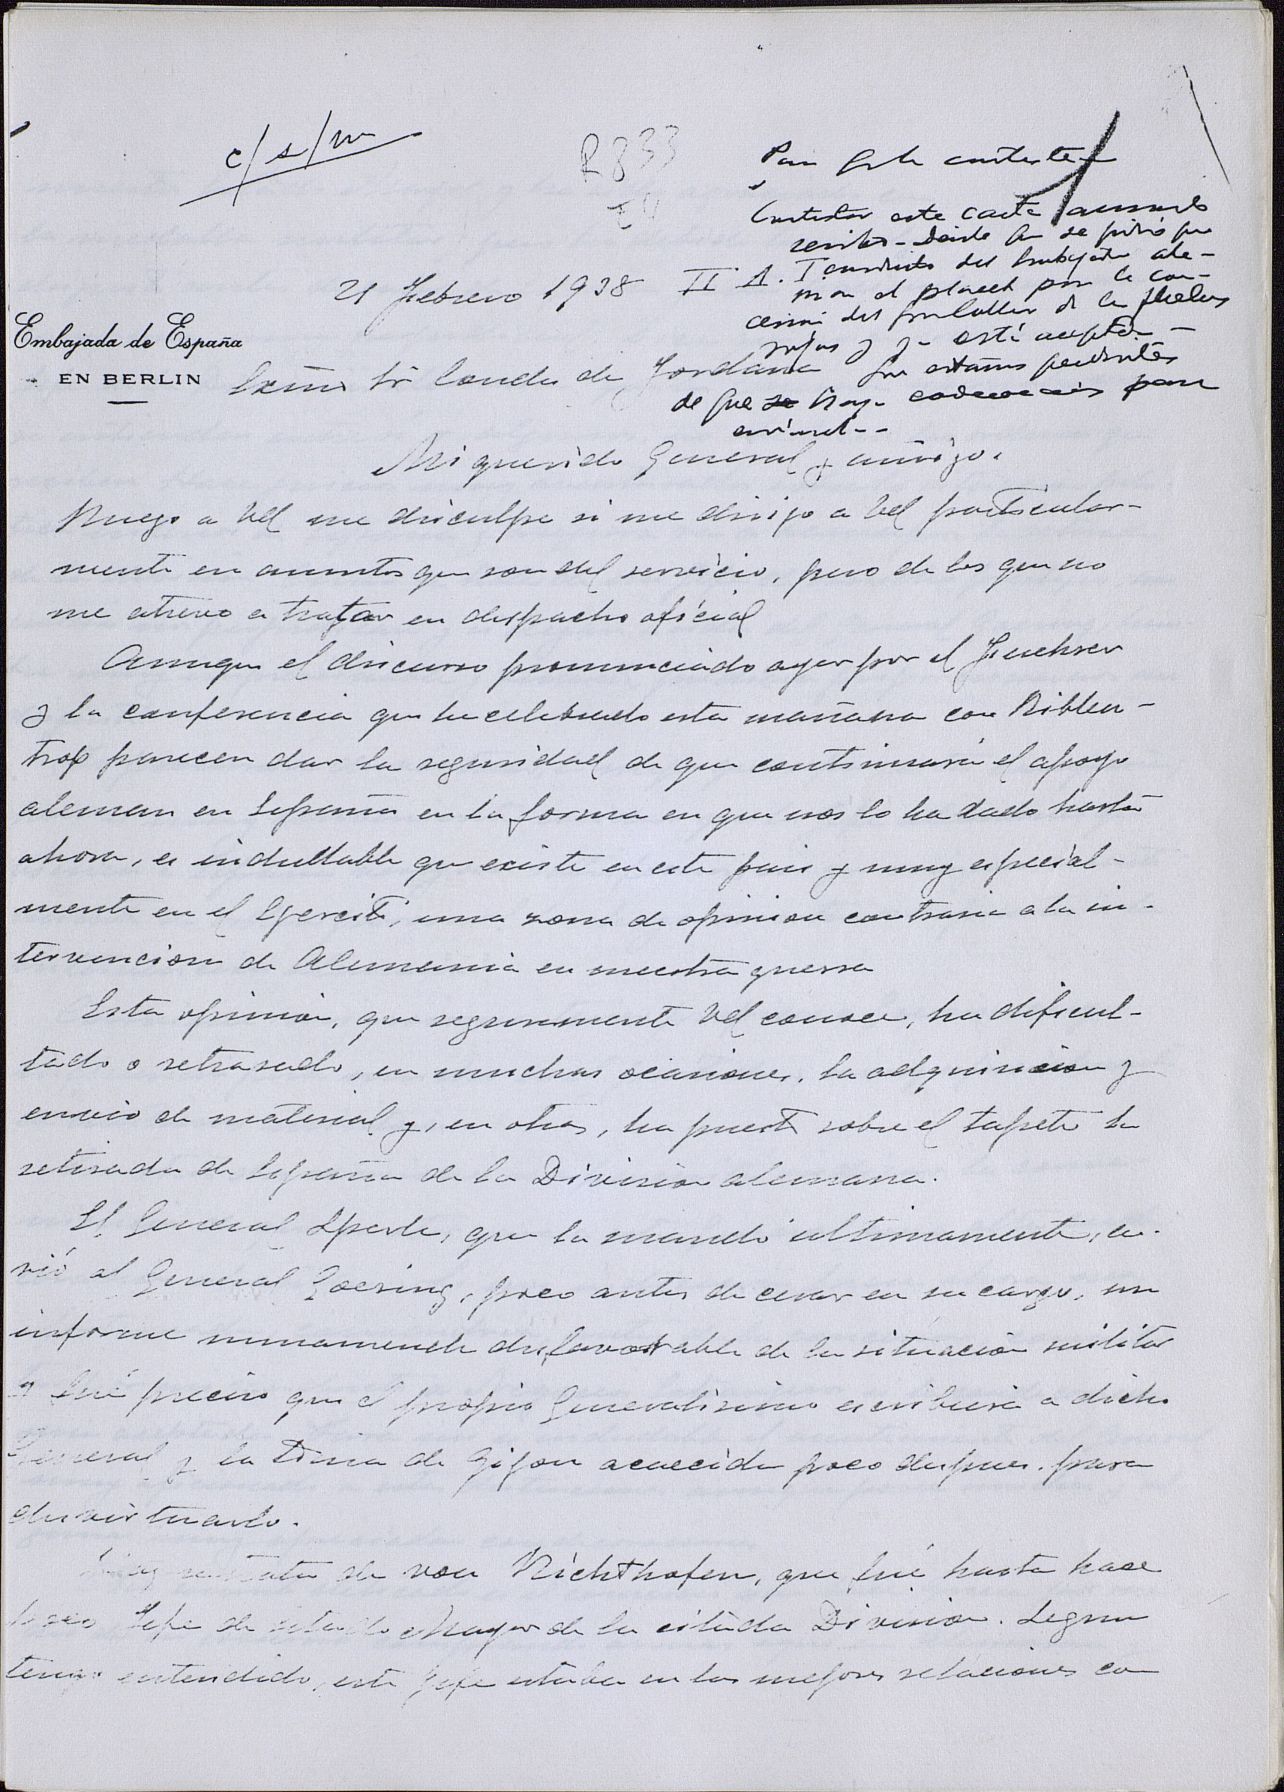 c/s/m
R833
Para contestar
Contestar esta carta acusando
recibo - Desde se pidió por
conducto del Embajador ale-
mán el placet para la con-
cesión del de las flechas
rojas y ya está
que estamos pendientes
de que haya para
II A. I
21 Febrero 1938
Embajada de España
EN BERLIN
Excmo Sr Conde de Jordana
Mi querido General y amigo.
Ruego a Vd me disculpe si me dirijo a Vd particular-
mente en asuntos que son del servicio, pero de los que no
me atrevo a tratar en despacho oficial
Aunque el discurso pronunciado ayer por el Fuehrer
y la conferencia que he celebrado esta mañana con Ribben-
trop parecen dar la seguridad de que continuará el apoyo
aleman en España en la forma en que nos lo ha dado hasta
ahora, es indudable que existe en este pais y muy especial-
mente en el Ejercito, una zona de opinion contraria a la in-
tervencion de Alemania en nuestra guerra
Esta opinion, que seguramente Vd conoce, ha dificul-
tado o retrasado, en muchas ocasiones, la adquisicion y
envio de material y, en otras, ha puesto sobre el tapete la
retirada de España de la Division alemana.
El General Sperle, que la mandó ultimamente, en-
vió al General Goering, poco antes de cesar en su cargo, un
informe sumamente desfavorable de la situacion militar
y fué preciso que el propio Generalisimo escribiera a dicho
General y la toma de Gijon acaecida poco despues, para
desvirtuarlo.
de von Richthofen, que fué hasta hace
poco Jefe de Estado Mayor de la citada Division. Segun
tengo entendido, este Jefe estaba en las mejores relaciones con